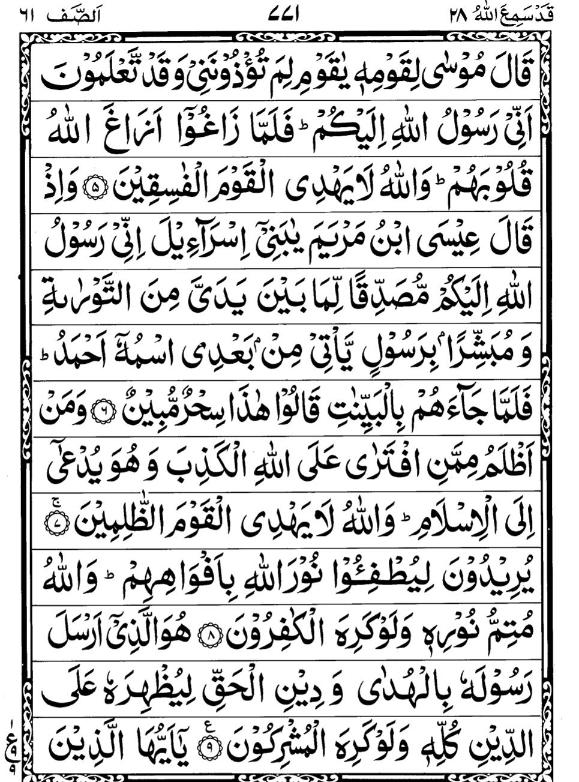 قَدْسَمِعَ اللهُ ٢٨ ٧٧١ اَلصَّف ٦١
قَالَ مُوْسٰى لِقَوْمِهٖ يٰقَوْمِ لِمَ تُؤْذُوْنَنِىْ وَقَدْ تَّعْلَمُوْنَ
اَنِّىْ رَسُوْلُ اللهِ اِلَيْكُمْ ؕ فَلَمَّا زَاغُوْۤا اَزَاغَ اللهُ
قُلُوْبَهُمْ ؕ وَاللهُ لَا يَهْدِى الْقَوْمَ الْفٰسِقِيْنَ ۝٥ وَاِذْ
قَالَ عِيْسَى ابْنُ مَرْيَمَ يٰبَنِىْۤ اِسْرَآءِيْلَ اِنِّىْ رَسُوْلُ
اللهِ اِلَيْكُمْ مُّصَدِّقًا لِّمَا بَيْنَ يَدَىَّ مِنَ التَّوْرٰىةِ
وَمُبَشِّرًاۢ بِرَسُوْلٍ يَّاْتِىْ مِنْۢ بَعْدِى اسْمُهٗۤ اَحْمَدُ ؕ
فَلَمَّا جَآءَهُمْ بِالْبَيِّنٰتِ قَالُوْا هٰذَا سِحْرٌ مُّبِيْنٌ ۝٦ وَمَنْ
اَظْلَمُ مِمَّنِ افْتَرٰى عَلَى اللهِ الْكَذِبَ وَهُوَ يُدْعٰۤى
اِلَى الْاِسْلَامِ ؕ وَاللهُ لَا يَهْدِى الْقَوْمَ الظّٰلِمِيْنَ ۝٧ۚ
يُرِيْدُوْنَ لِيُطْفِئُوْا نُوْرَ اللهِ بِاَفْوَاهِهِمْ ؕ وَاللهُ
مُتِمُّ نُوْرِهٖ وَلَوْ كَرِهَ الْكٰفِرُوْنَ ۝٨ هُوَ الَّذِىْۤ اَرْسَلَ
رَسُوْلَهٗ بِالْهُدٰى وَدِيْنِ الْحَقِّ لِيُظْهِرَهٗ عَلَى
الدِّيْنِ كُلِّهٖ وَلَوْ كَرِهَ الْمُشْرِكُوْنَ ۝٩ ع يٰۤاَيُّهَا الَّذِيْنَ